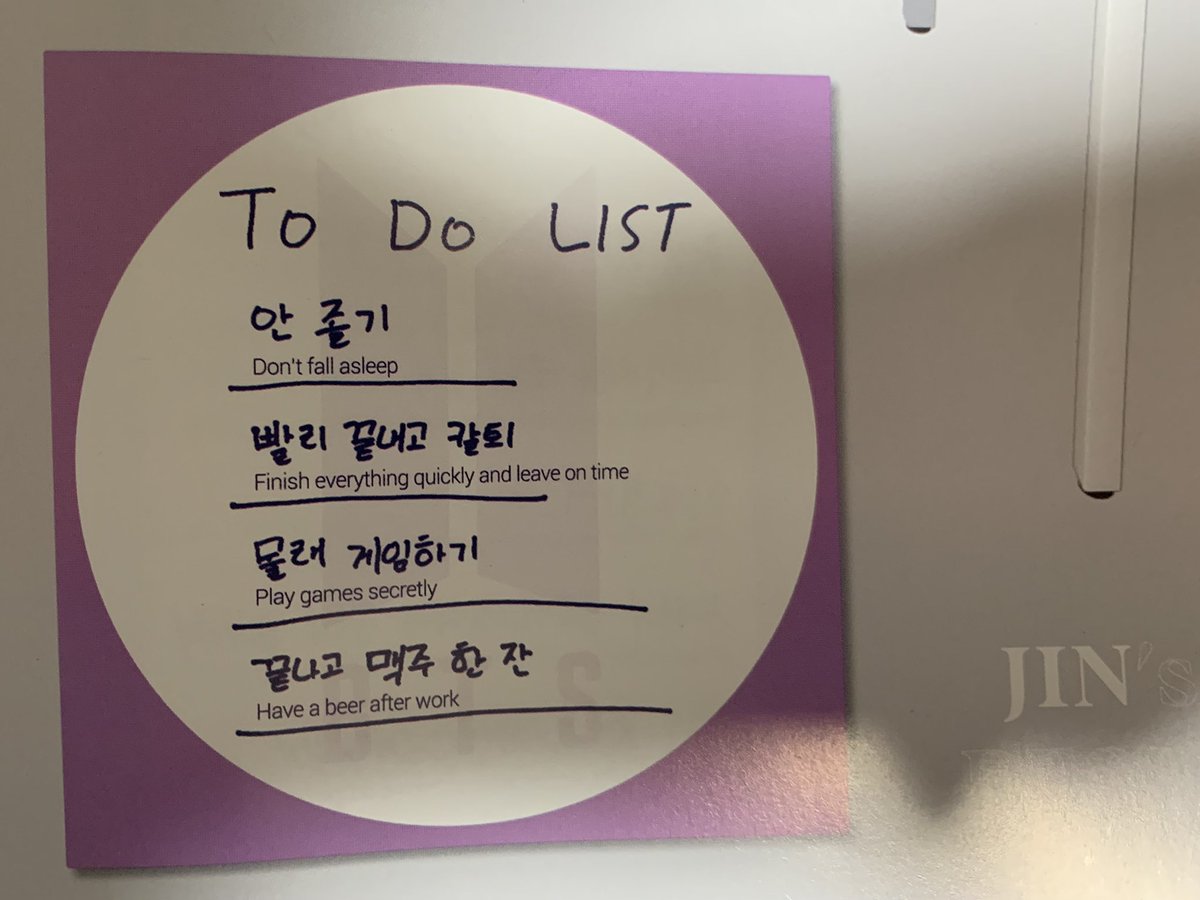 To Do LIST
안 졸기
Don't fall asleep
빨리 끝내고 칼퇴
Finish everything quickly and leave on time
몰래 게임하기
Play games secretly
끝나고 맥주 한 잔
Have a beer after work
BTS
JIN's